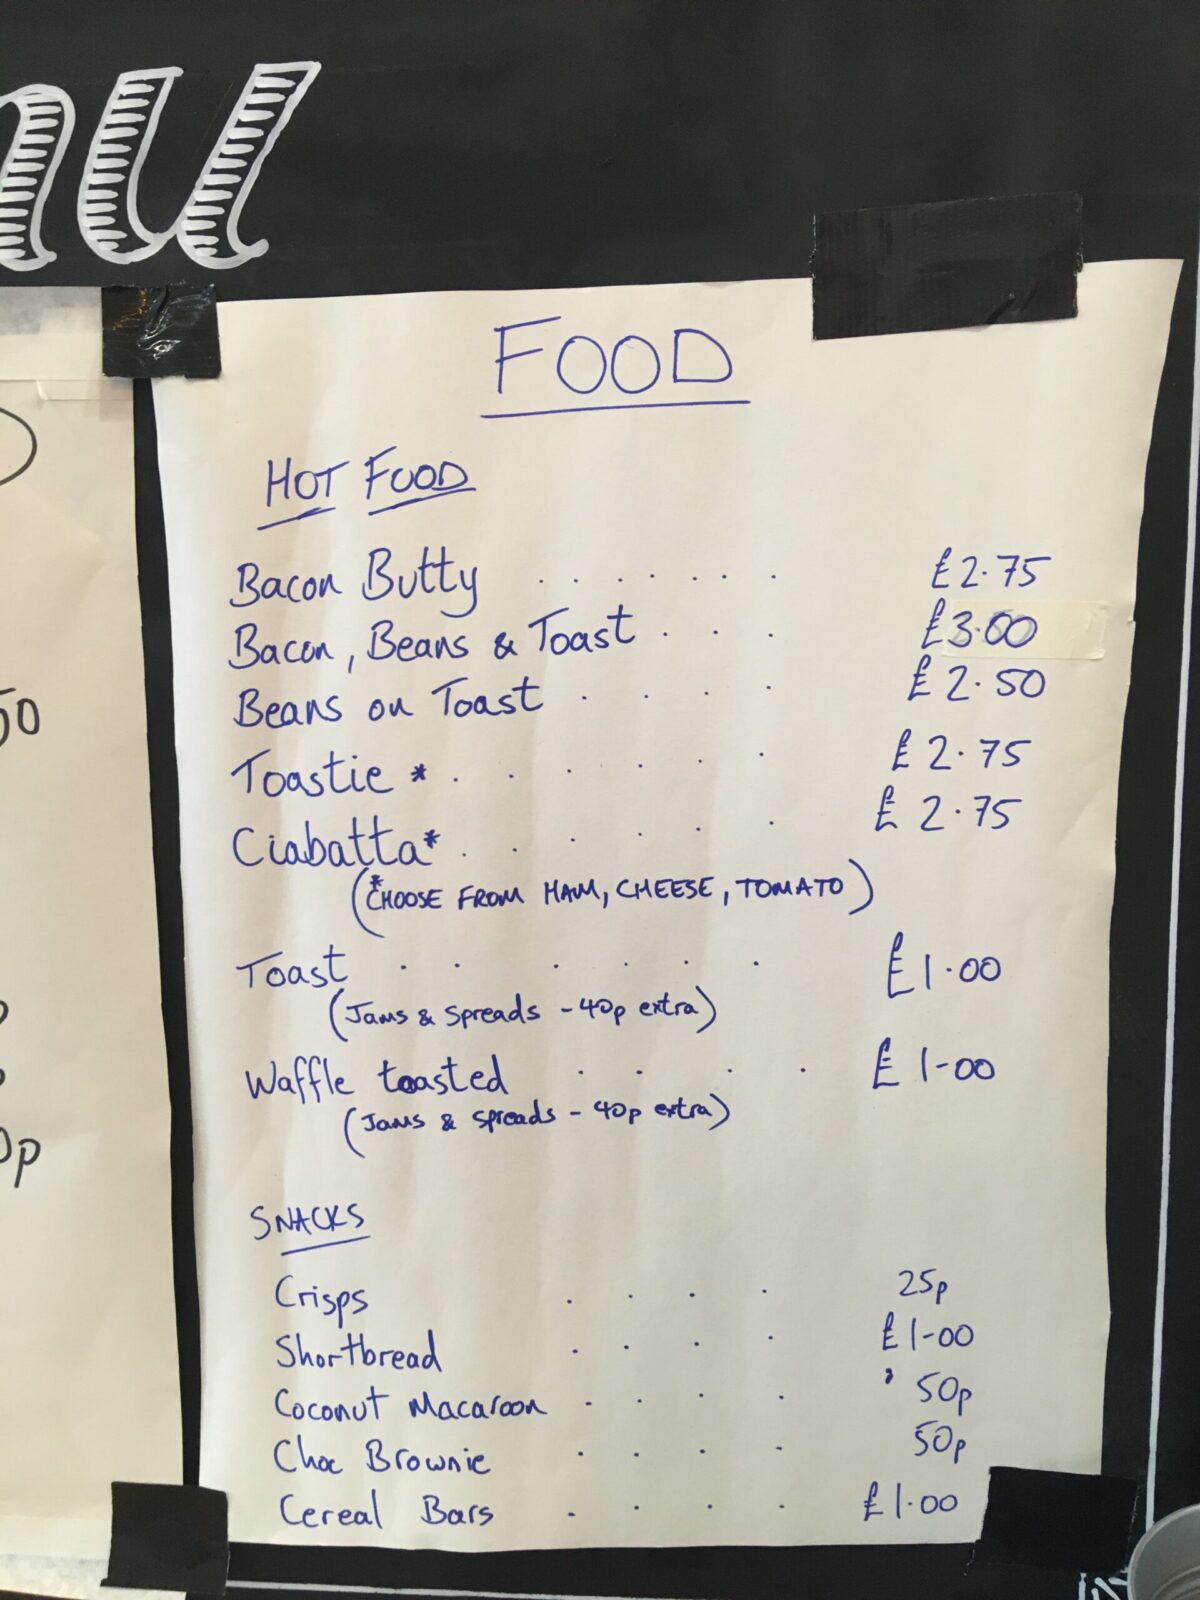 nu
FOOD
HOT FOOD
Bacon Butty . . . . . . . £2.75
Bacon, Beans & Toast . . . £3.00
Beans on Toast . . . . £2.50
Toastie * . . . . . . £2.75
Ciabatta* . . . . . . £2.75
(*CHOOSE FROM HAM, CHEESE, TOMATO)
Toast . . . . . . £1.00
(Jams & Spreads - 40p extra)
Waffle toasted . . . . £1-00
(Jams & Spreads - 40p extra)
SNACKS
Crisps . . . . 25p
Shortbread . . . . £1-00
Coconut Macaroon . . . . 50p
Choc Brownie . . . . 50p
Cereal Bars . . . . £1.00
50
0p